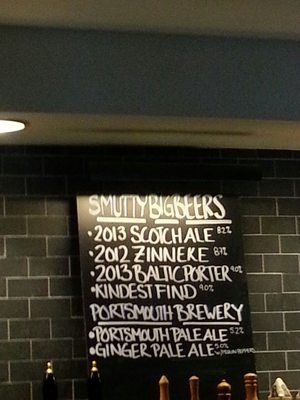 SMUTTYBIGBEERS
• 2013 SCOTCH ALE 8.2%
• 2012 ZINNEKE 8.1%
• 2013 BALTIC PORTER 9.0%
• KINDEST FIND 9.0%
PORTSMOUTH BREWERY
• PORTSMOUTH PALE ALE 5.2%
• GINGER PALE ALE 5.0% W/MELIN PEPPERS